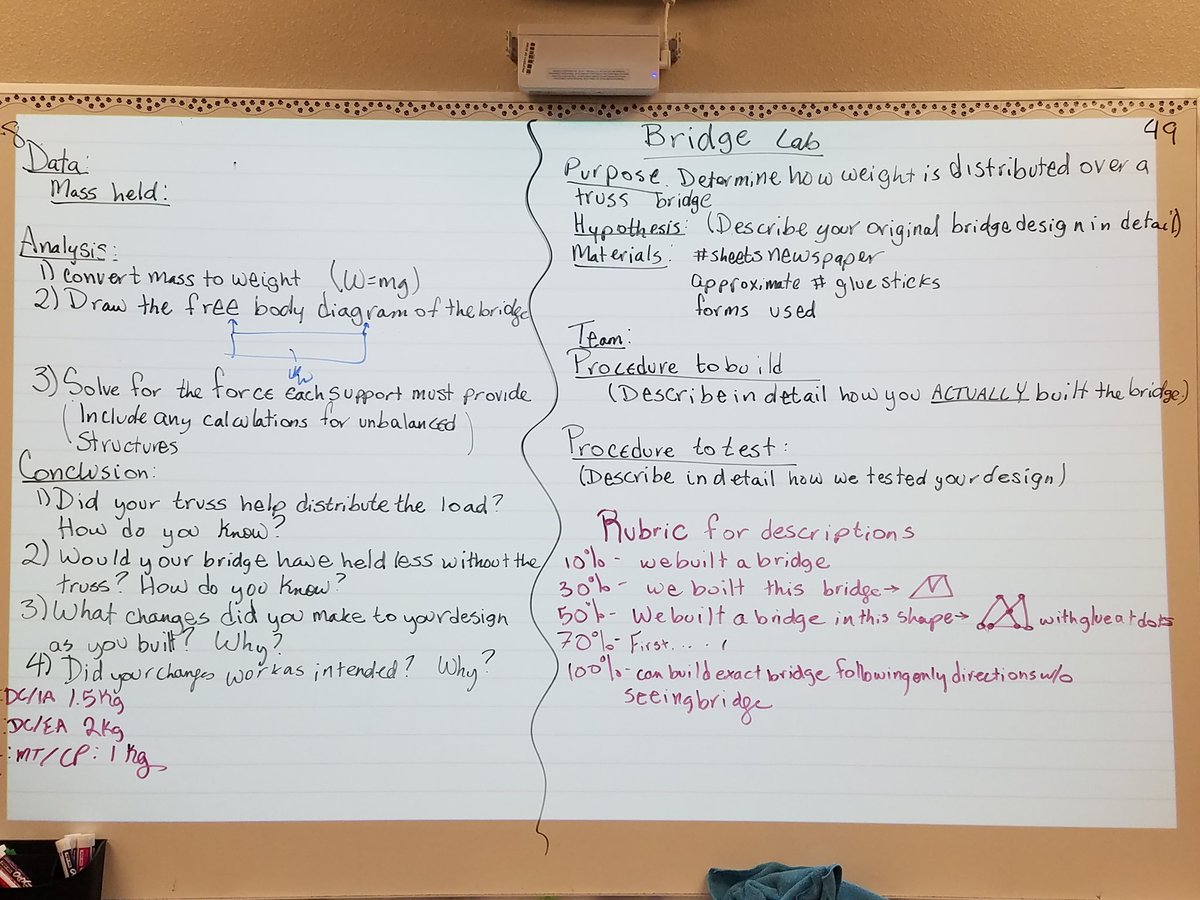 8
Data:
Mass held:
Analysis:
1) Convert mass to weight (W=mg)
2) Draw the free body diagram of the bridge
3) Solve for the force each support must provide
(Include any calculations for unbalanced
structures)
Conclusion:
1) Did your truss help distribute the load?
How do you know?
2) Would your bridge have held less without the
truss? How do you know?
3) What changes did you make to your design
as you built? Why?
4) Did your changes work as intended? Why?
DC/IA 1.5kg
DC/EA 2kg
MT/CP: 1 kg
49
Bridge Lab
Purpose. Determine how weight is distributed over a
truss bridge
Hypothesis: (Describe your original bridge design in detail)
Materials: #sheets newspaper
approximate # glue sticks
forms used
Team:
Procedure to build
(Describe in detail how you ACTUALLY built the bridge)
Procedure to test:
(Describe in detail how we tested your design)
Rubric for descriptions
10% - we built a bridge
30% - we built this bridge→
50% - We built a bridge in this shape→ with glue at dots
70% - First....,
100% - can build exact bridge following only directions w/o
seeing bridge